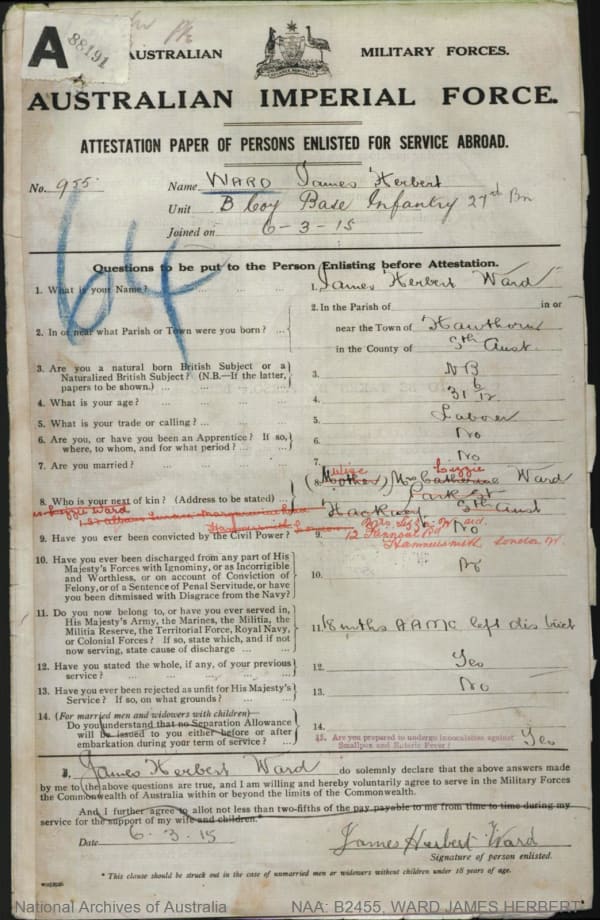 A
88191
AUSTRALIAN MILITARY FORCES.
AUSTRALIAN IMPERIAL FORCE.
ATTESTATION PAPER OF PERSONS ENLISTED FOR SERVICE ABROAD.
No. 955 Name WARD James Herbert
Unit B Coy Base Infantry 27th Bn
Joined on 6-3-15
64
Questions to be put to the Person Enlisting before Attestation.
1. What is your Name? ... ... ... 1. James Herbert Ward
2. In or near what Parish or Town were you born? ... 2. In the Parish of in or
near the Town of Hawthorn
in the County of Sth Aust.
3. Are you a natural born British Subject or a
Naturalized British Subject? (N.B.—If the latter,
papers to be shown.) ... 3. NB
4. What is your age? ... 4. 31 6/12
5. What is your trade or calling? ... 5. Labourer
6. Are you, or have you been an Apprentice? If so,
where, to whom, and for what period? ... 6. No
7. Are you married? ... 7. No
8. Who is your next of kin? (Address to be stated) ... 8. (Mother) Mrs Catherine Ward
Wife Lizzie
Park St
Hackney Sth Aust
Mrs Lizzie Ward
Hammersmith London
Mrs Lizzie Ward
12 Rd
Hammersmith London W.
9. Have you ever been convicted by the Civil Power? 9. No
10. Have you ever been discharged from any part of His
Majesty's Forces with Ignominy, or as Incorrigible
and Worthless, or on account of Conviction of
Felony, or of a Sentence of Penal Servitude, or have
you been dismissed with Disgrace from the Navy? 10. No
11. Do you now belong to, or have you ever served in,
His Majesty's Army, the Marines, the Militia, the
Militia Reserve, the Territorial Force, Royal Navy,
or Colonial Forces? If so, state which, and if not
now serving, state cause of discharge ... 11. 18 mths AAMC left district
12. Have you stated the whole, if any, of your previous
service? ... 12. Yes
13. Have you ever been rejected as unfit for His Majesty's
Service? If so, on what grounds? ... 13. No
14. (For married men and widowers with children)—
Do you understand that no Separation Allowance
will be issued to you either before or after
embarkation during your term of service? ... 14.
15. Are you prepared to undergo inoculation against
Smallpox and Enteric Fever? Yes
I, James Herbert Ward do solemnly declare that the above answers made
by me to the above questions are true, and I am willing and hereby voluntarily agree to serve in the Military Forces
of the Commonwealth of Australia within or beyond the limits of the Commonwealth.
And I further agree to allot not less than two-fifths of the pay payable to me from time to time during my
service for the support of my wife and children.*
Date 6.3.15 James Herbert Ward
Signature of person enlisted.
* This clause should be struck out in the case of unmarried men or widowers without children under 18 years of age.
National Archives of Australia NAA: B2455, WARD JAMES HERBERT